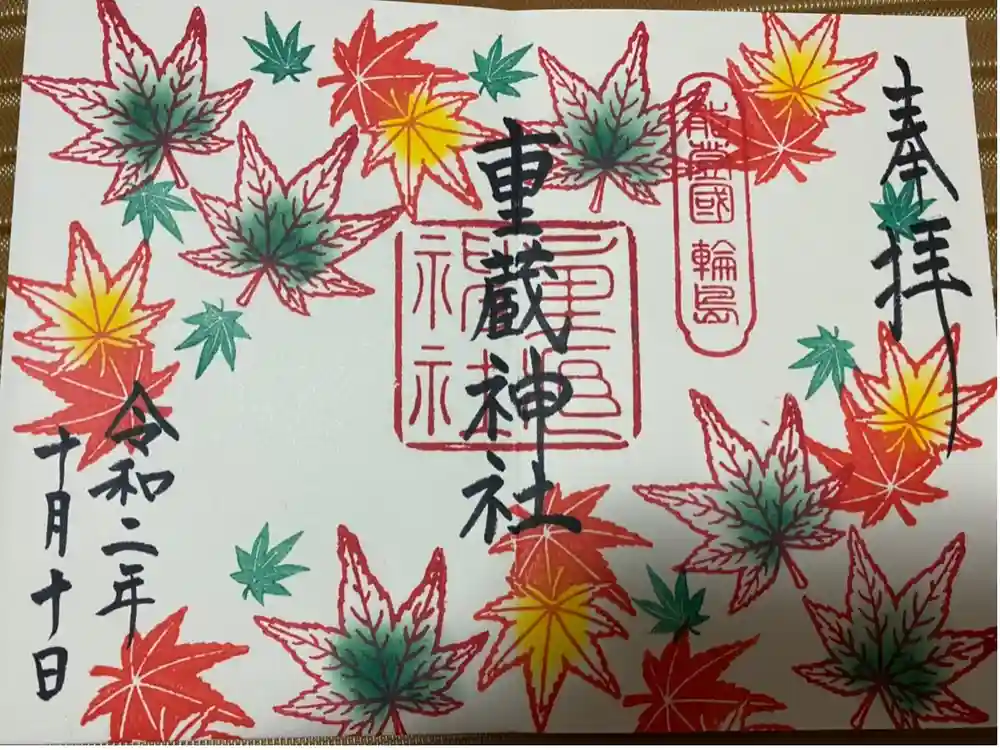 奉拝
能登國 輪島
重蔵神社
重蔵神社
令和二年
十月十日